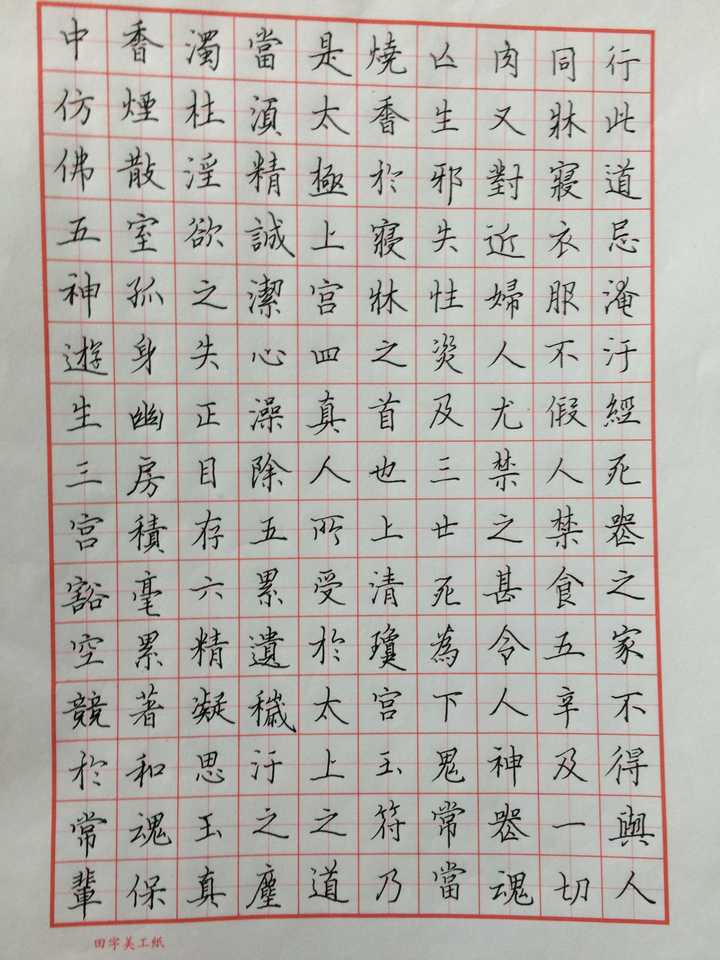 行此道忌淹汙經死器之家不得與人
同牀寢衣服不假人禁食五辛及一切
肉又對近婦人尤禁之甚令人神器魂
亾生邪失性災及三世死為下鬼常當
燒香於寢牀之首也上清瓊宮玉符乃
是太極上宮四真人所受於太上之道
當湏精誠潔心澡除五累遺穢汙之塵
濁杜淫欲之失正目存六精凝思玉真
香煙散室孤身幽房積毫累著和魂保
中仿佛五神遊生三宮豁空競於常輩
田字美工紙